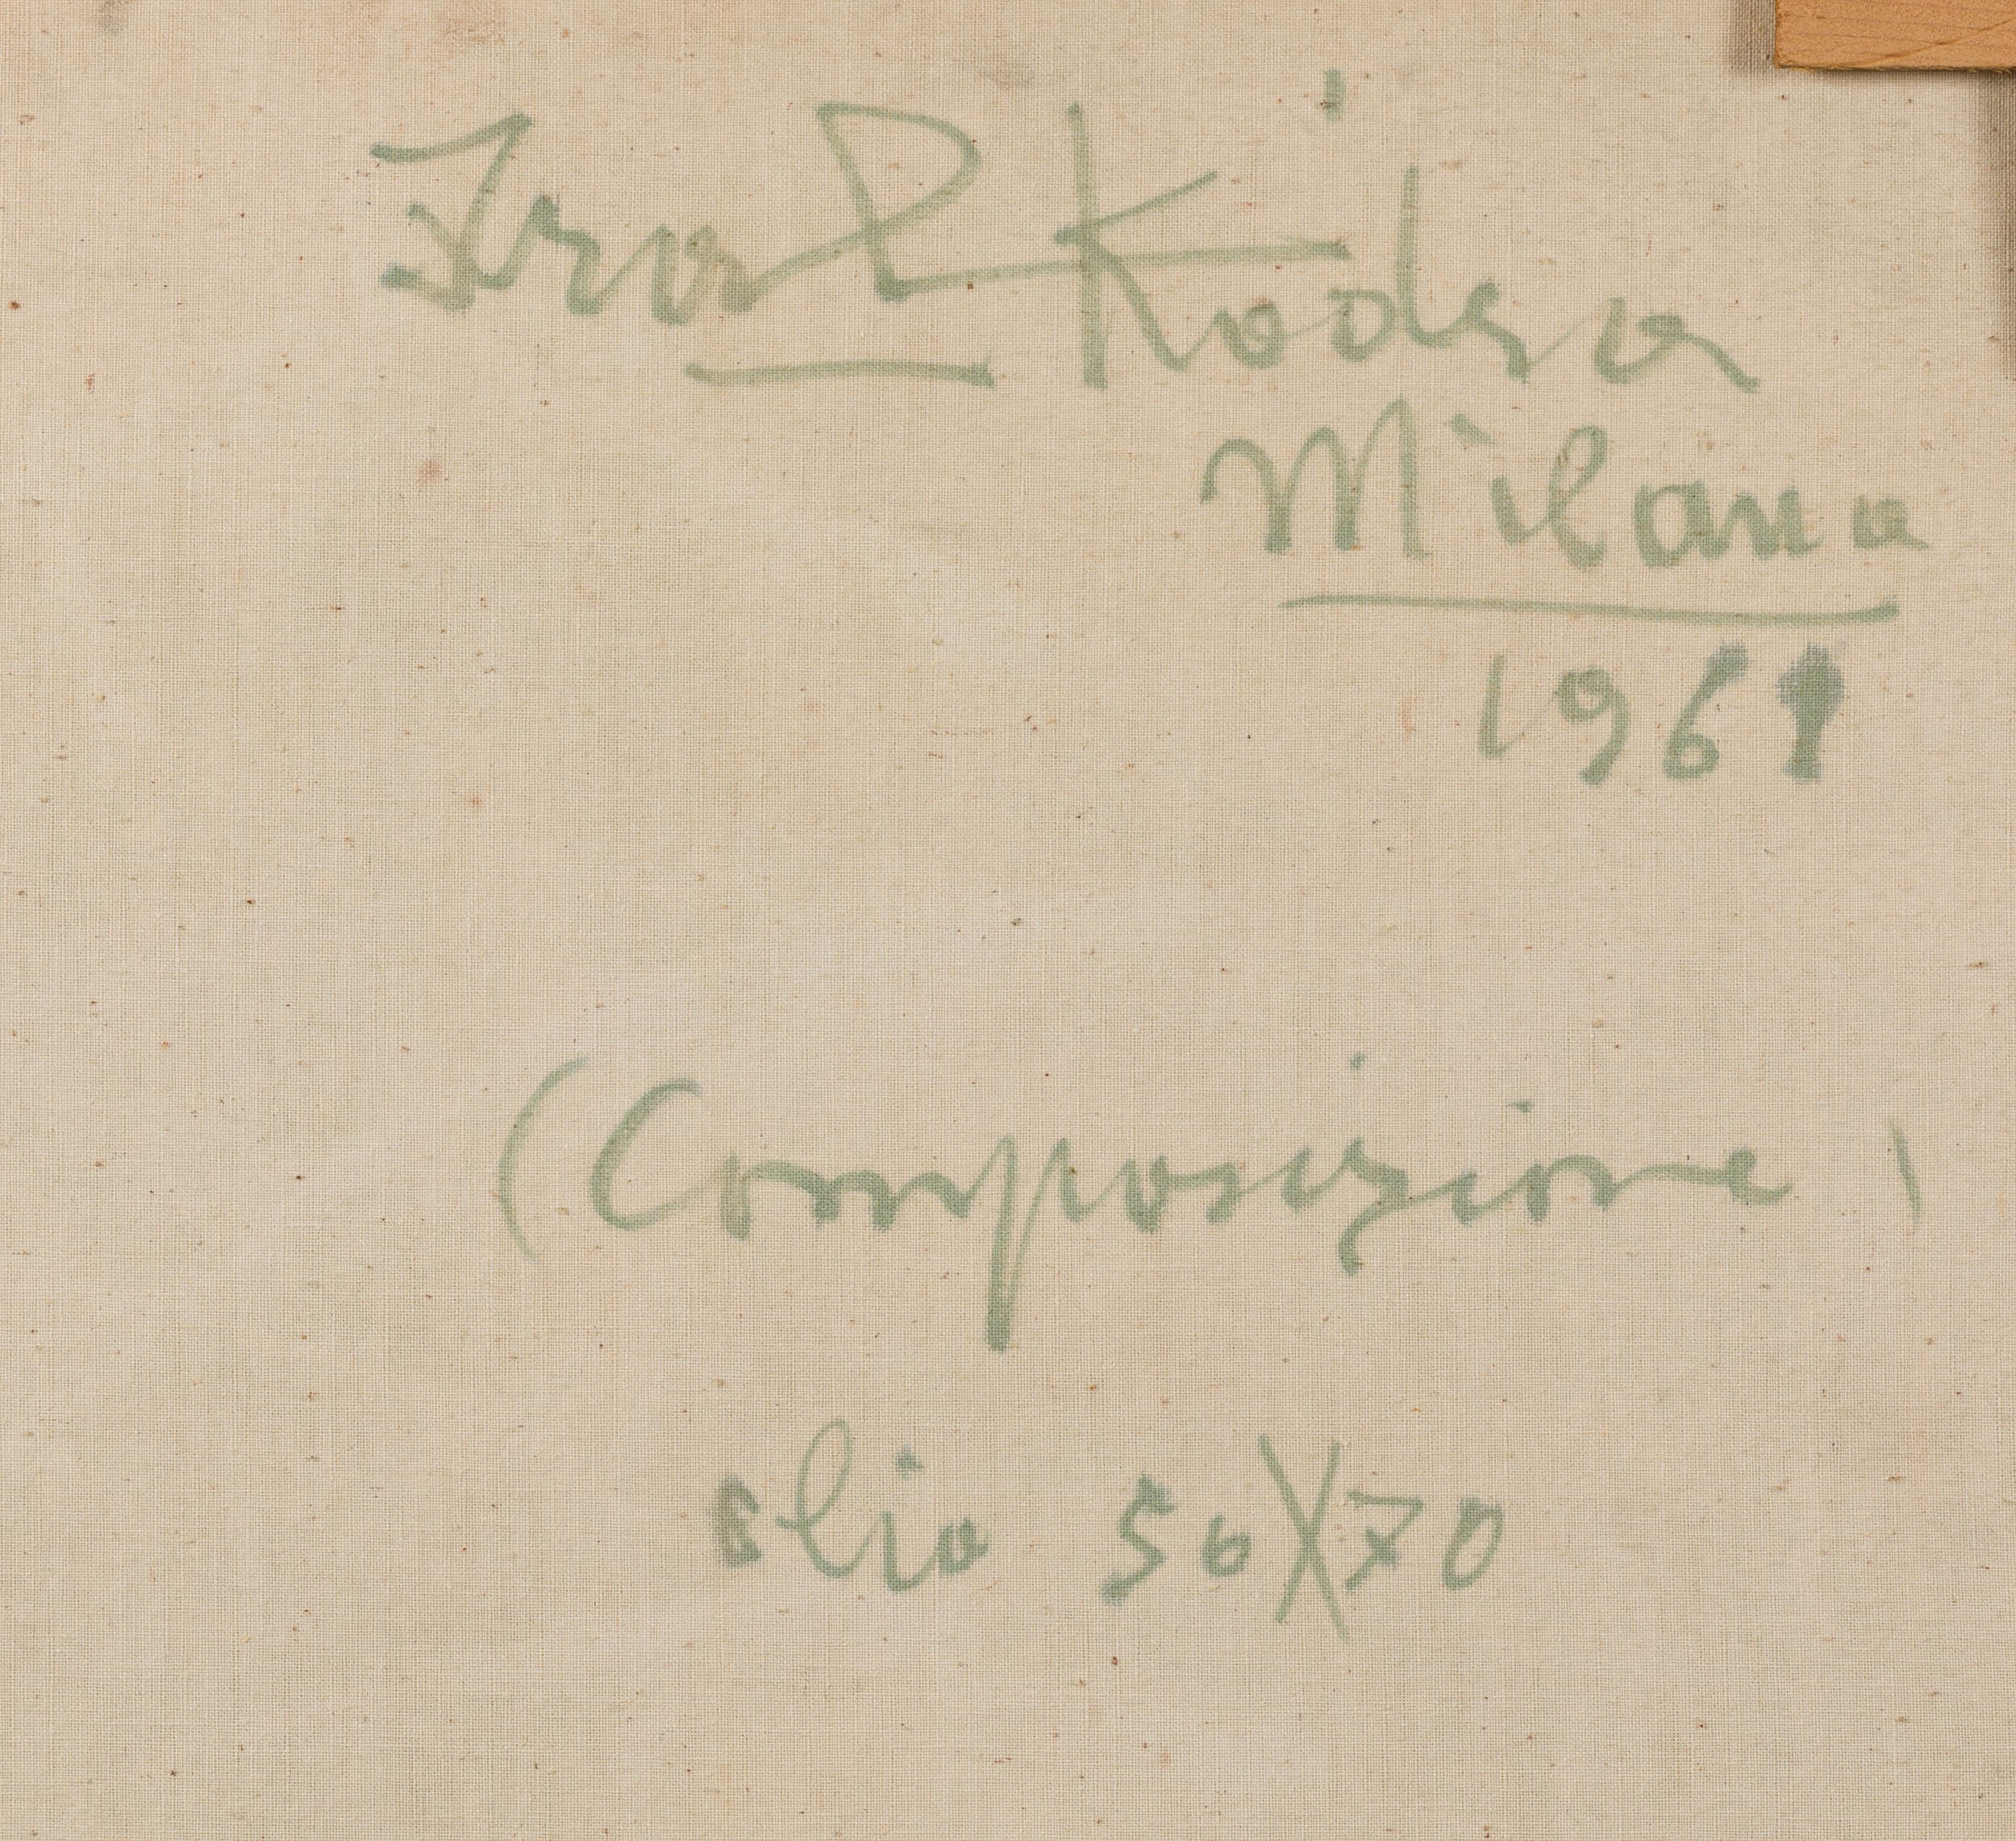 Kodra
Milano
1961
(Composizione)
olio 50X70